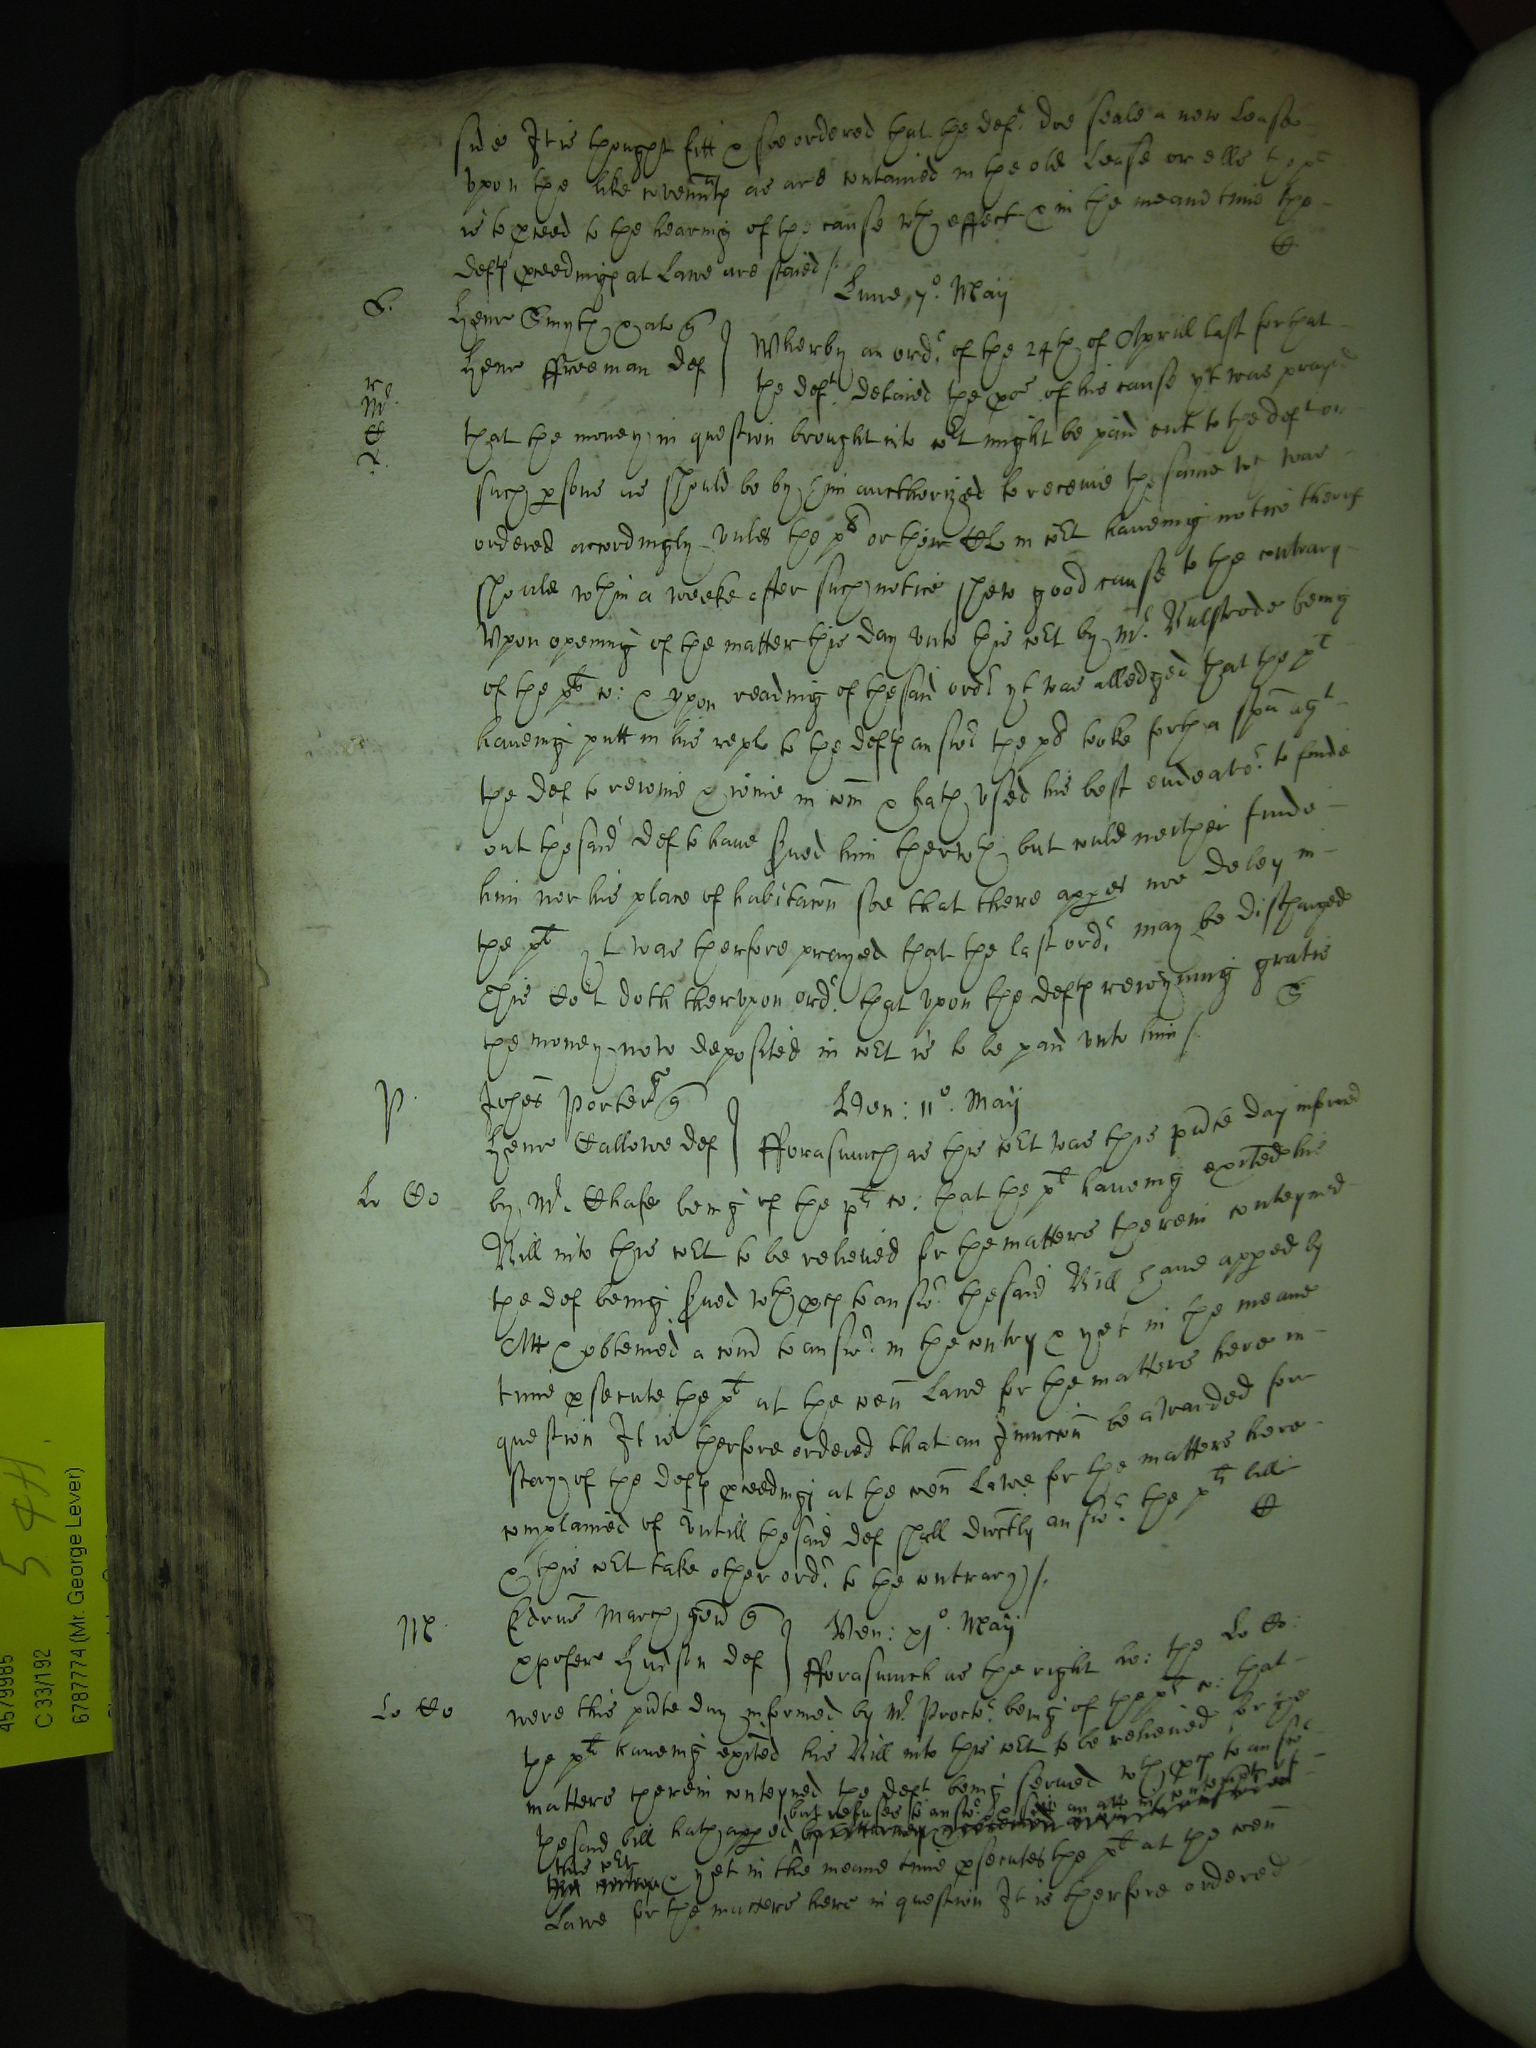 side It is thought fitt & soe ordered that the deft. doe seale a new Lease
vpon the like covennts as are contained in the old Lease or ells the plt
is to pceed to the hearing of the cause wth effect & in the meane time the
defts pceedings at Lawe are staied /.
Lune 7o. Maij
S.
Henr Smyth
Henr ffreeman def
Wherby an ordr. of the 24th of Aprill last for that
the deft. delaied the of his cause yt was prayed
Mr.
that the money in question brought into cort might be paid out to the deft or
such psons as should be by him aucthorized to receive the same wch was
ordered accordingly vnles the plt or their Clr in cort haveing notice therof
should wthin a weeke after such notice shew good cause to the contrary
Vpon opening of the matter this day vnto this cort by Mr. Bulstrode being
of the plts co: & vpon reading of the said ordr yt was alledged that the plt
haveing putt in his repl to the defts answr the plt tooke forth a spa agt
the def to reioine & ioine in com & hath vsed his best endeavor. to finde
out the said def to have sued him therwth but could neither finde
him nor his place of habitacon soe that there appes noe deley in
the plt yt was therfore prayed that the last ordr. may be discharged
This Cort doth thervpon ordr. that vpon the defts reioyning gratis
the money now deposited in cort is to be paid vnto him /.
P.
Johes Porter
Henr Callowe def
Ven: 11o. Maij
fforasmuch as this cort was this pnte day informed
Lo Co
by Mr. Chafe being of the plts co: that the plt haveing exited his
Bill into this cort to be relieved for the matters therein conteyned
the def being sued wth pces to answr. the said Bill have apped by
Att & obteined a comn to answr. in the contry & yet in the meane
time psecute the plt at the comn Lawe for the matters here in
question It is therfore ordered that an Iniunccon be awarded for
stay of the defts pceedings at the comn Lawe for the matters here
complained of vntill the said def shall directly answr. the plts bill
& this cort take other ordr. to the contrary /.
M.
Edrus March gen
Xpofere Hudson def
Ven: xjo. Maij
fforasmuch as the right ho: the Lo Co:
Lo Co
were this pnte day informed by Mr. Proctor. being of the plts co: that
the plt haveing exited his Bill into this cort to be relieved for the
matters therein conteyned the deft being served wth pces to answr
but refuses to answr. & sitts in an att in contempt of
the said bill hath apped by Attorney
this cort
& yet in the meane time psecutes the plt at the comn
Lawe for the matters here in question It is therfore ordered
5 4H.
4579985
C 33/192
6787774 (Mr. George Lever)